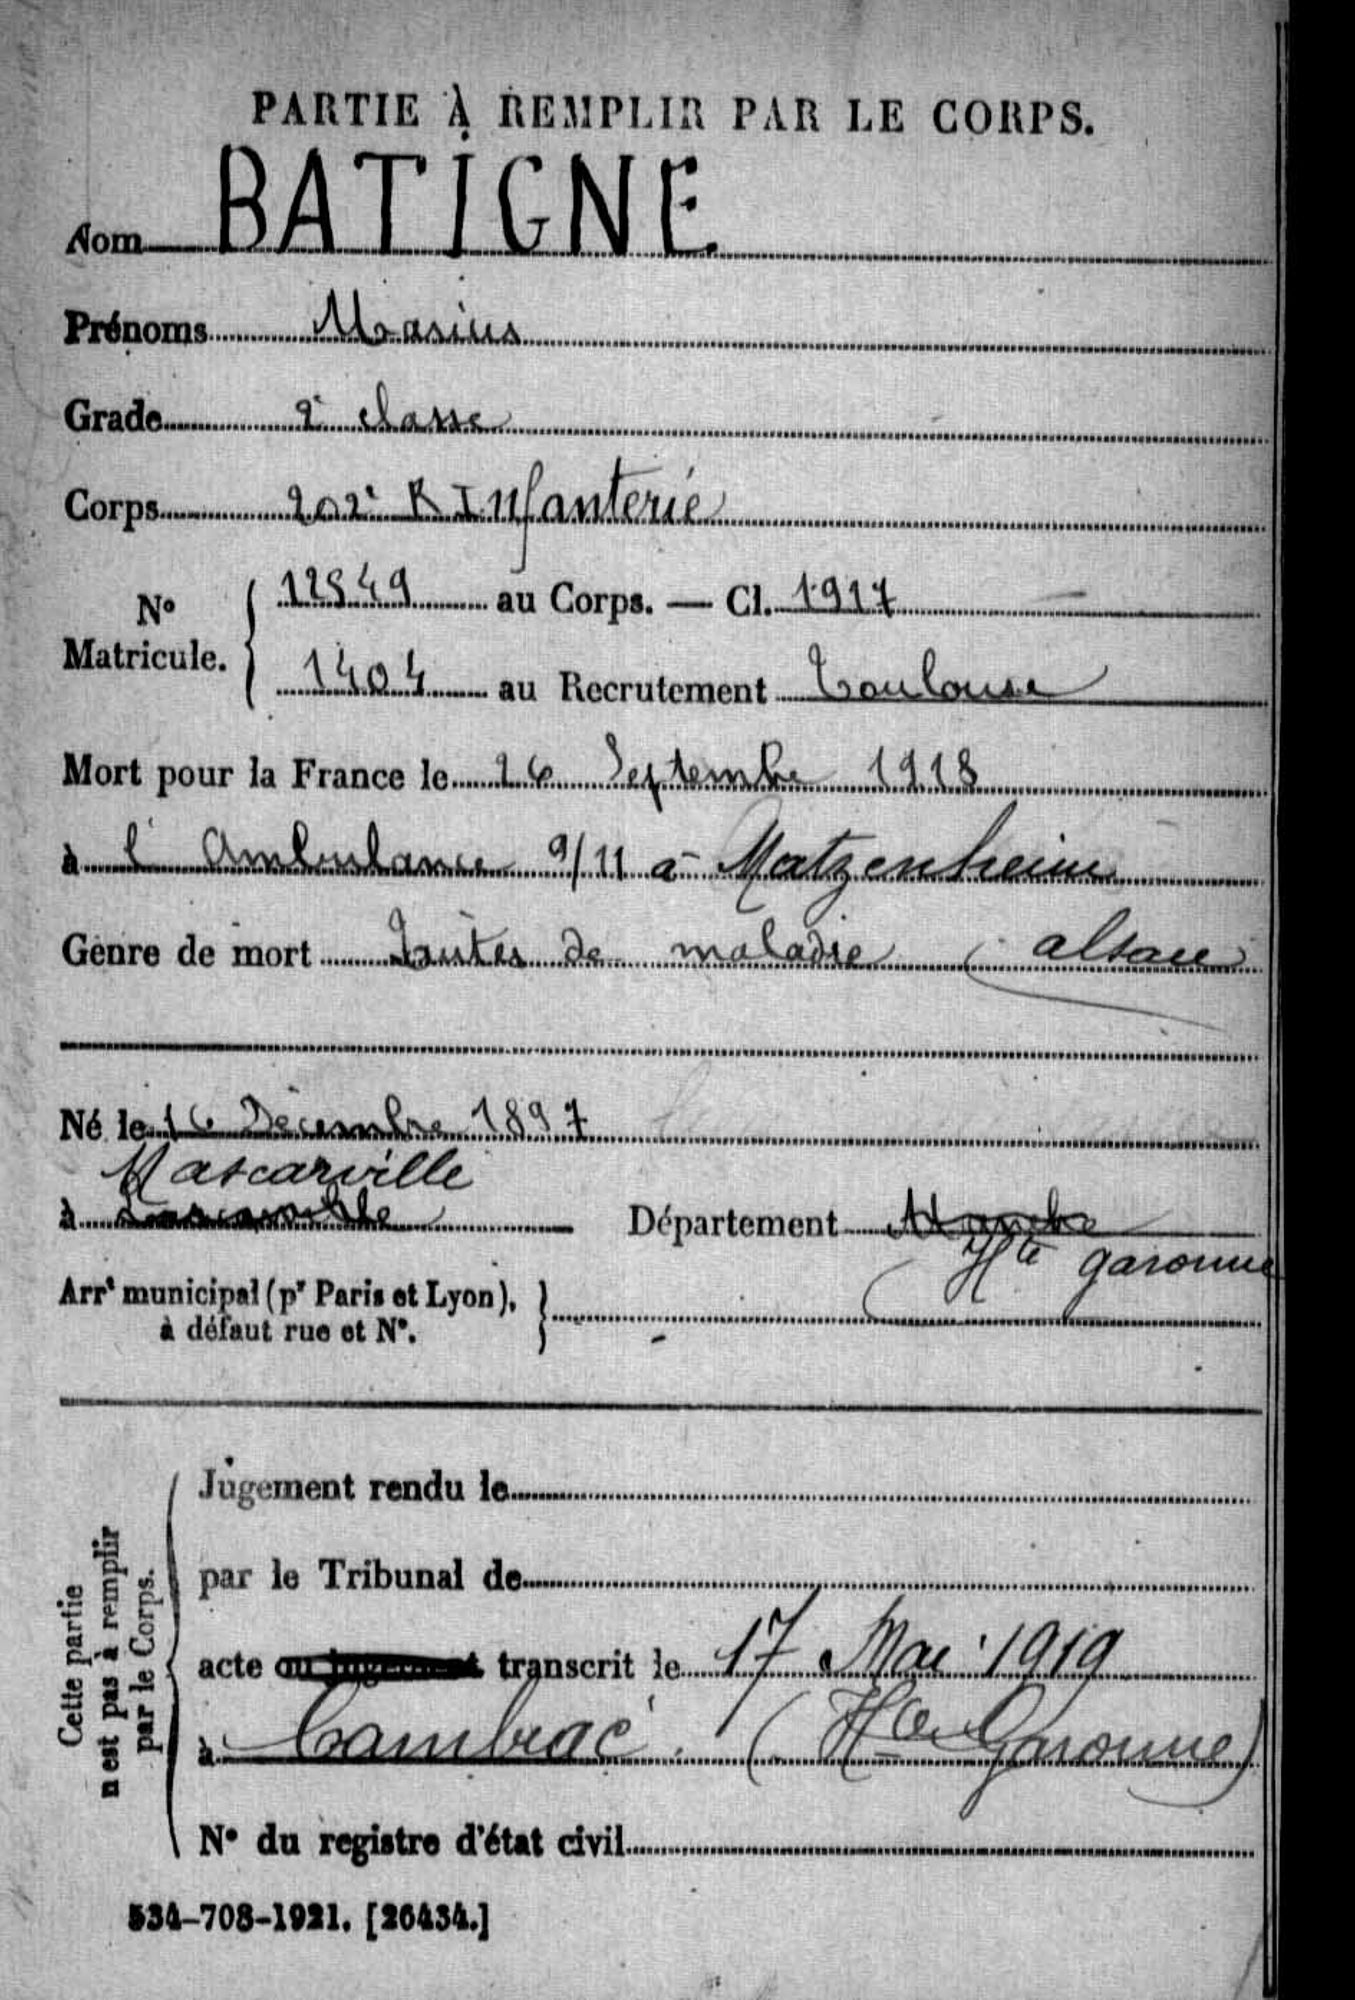 PARTIE À REMPLIR PAR LE CORPS.
Nom BATIGNE
Prénoms Marius
Grade 2e classe
Corps 202e R Infanterie
No Matricule. { 12549 au Corps. — Cl. 1917
1404 au Recrutement Toulouse
Mort pour la France le 26 Septembre 1918
à l'Ambulance 9/11 à Matzenheim
Genre de mort Suites de maladie (alsace
Né le 16 Décembre 1897
Mascarville
à Département
Hte garonne
Arrt municipal (pr Paris et Lyon), }
à défaut rue et No.
Cette partie
n'est pas à remplir
par le Corps.
Jugement rendu le
par le Tribunal de
acte ou jugement transcrit le 17 Mai 1919
à Cambiac (Hte Garonne)
No du registre d'état civil
534-708-1921. [26434.]